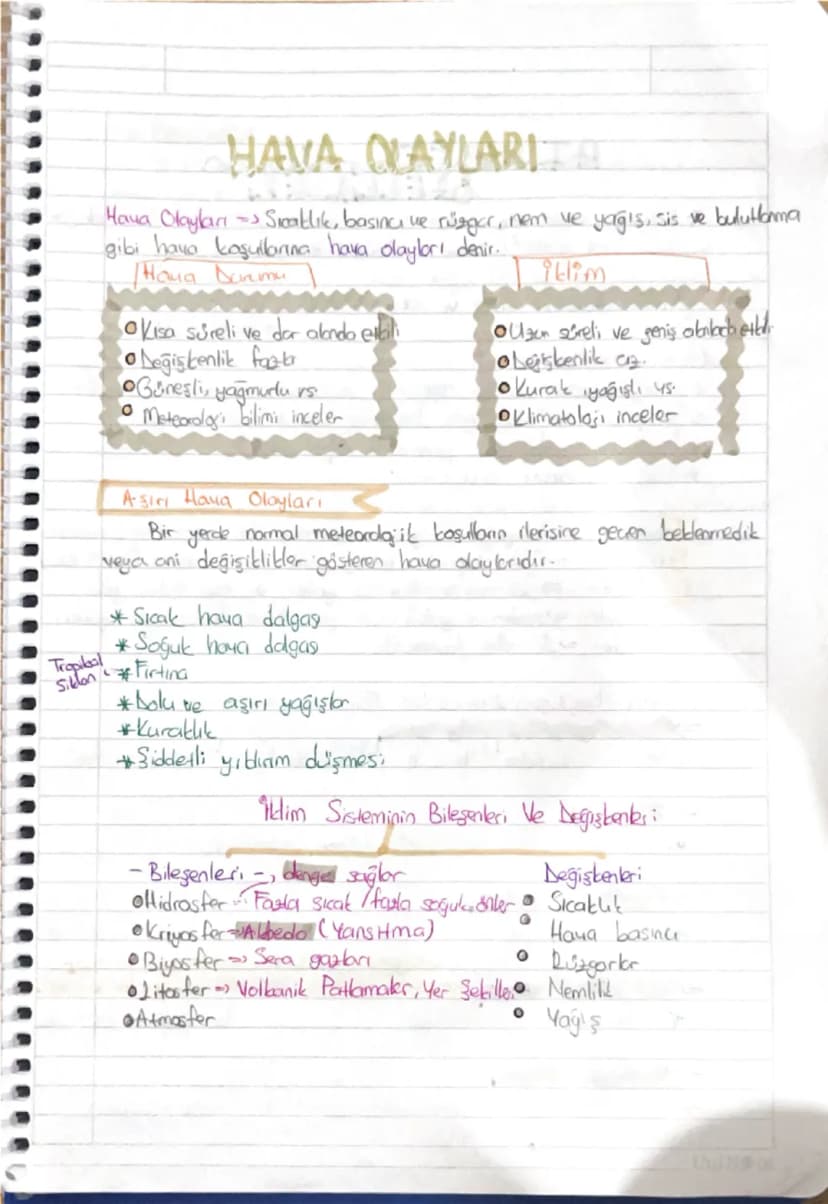 HAVA OLAYLARI
Hava Olayları => Sıcaklık, basıncı ve rüzgar, nem ve yağış, sis ve bulutlanma
gibi hava koşullarına hava olayları denir.
Hava Durumu
İklim
Kısa süreli ve dar alanda etkili
Değişkenlik fazla
Güneşli, yağmurlu vs.
Meteoroloji bilimi inceler
Uzun süreli ve geniş alanlarda etkili
Değişkenlik az.
Kurak, yağışlı vs.
Klimatoloji inceler
Aşırı Hava Olayları
Bir yerde normal meteorolojik koşulların ilerisine geçen beklenmedik
veya ani değişiklikler gösteren hava olaylarıdır.
* Sıcak hava dalgası
* Soğuk hava dalgası
Tropikal Siklon
* Fırtına
* Dolu ve aşırı yağışlar
* Kuraklık
* Şiddetli yıldırım düşmesi
İklim Sisteminin Bileşenleri Ve Değişkenleri
- Bileşenleri -> denge sağlar
Hidrosfer -> Fazla sıcak / fazla soğuk önler
Kriyosfer => Albedo (Yansıtma)
Biyosfer => Sera gazları
Litosfer => Volkanik Patlamalar, Yer Şekilleri
Atmosfer
Değişkenleri
Sıcaklık
Hava basıncı
Rüzgarlar
Nemlilik
Yağış